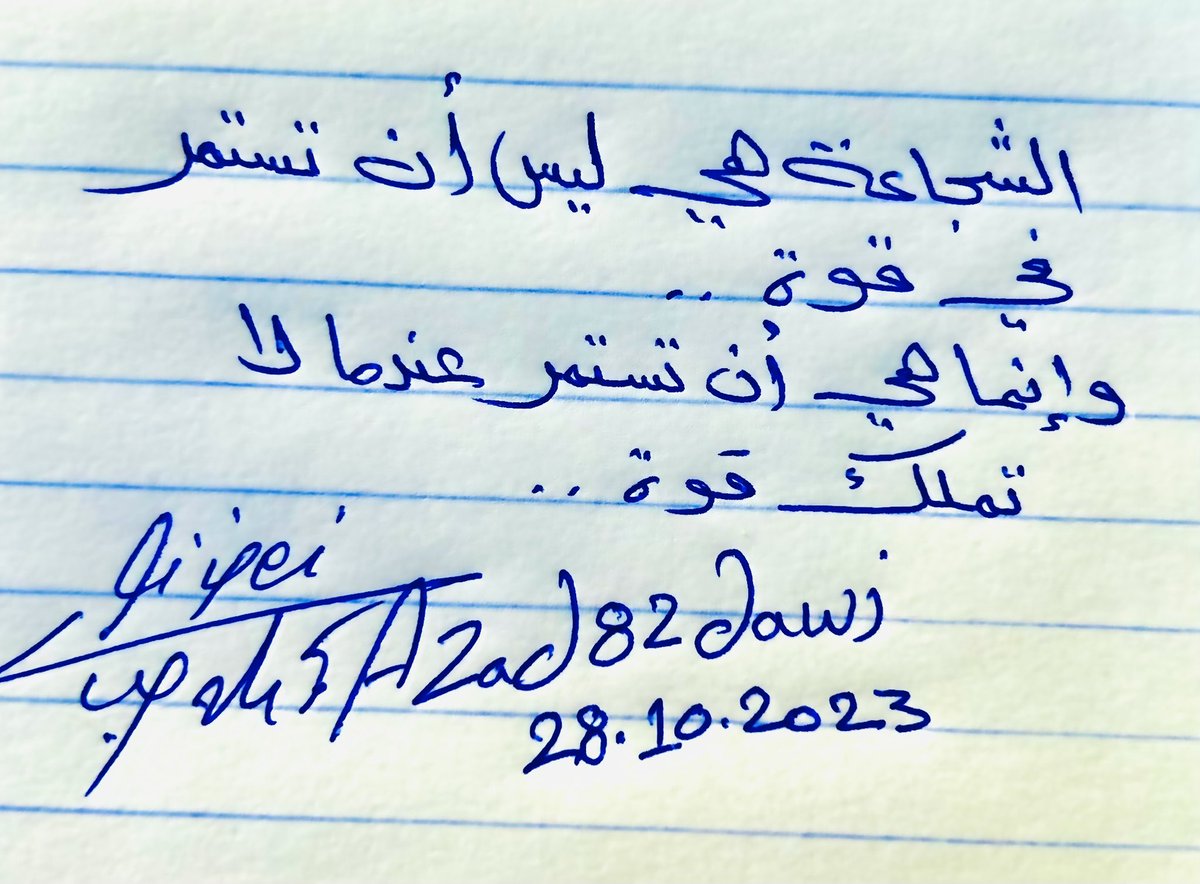 الشجاعة هي ليس أن تستمر
في قوة ..
وإنما هي أن تستمر عندما لا
تملك قوة ..
Azad82dawi
28.10.2023